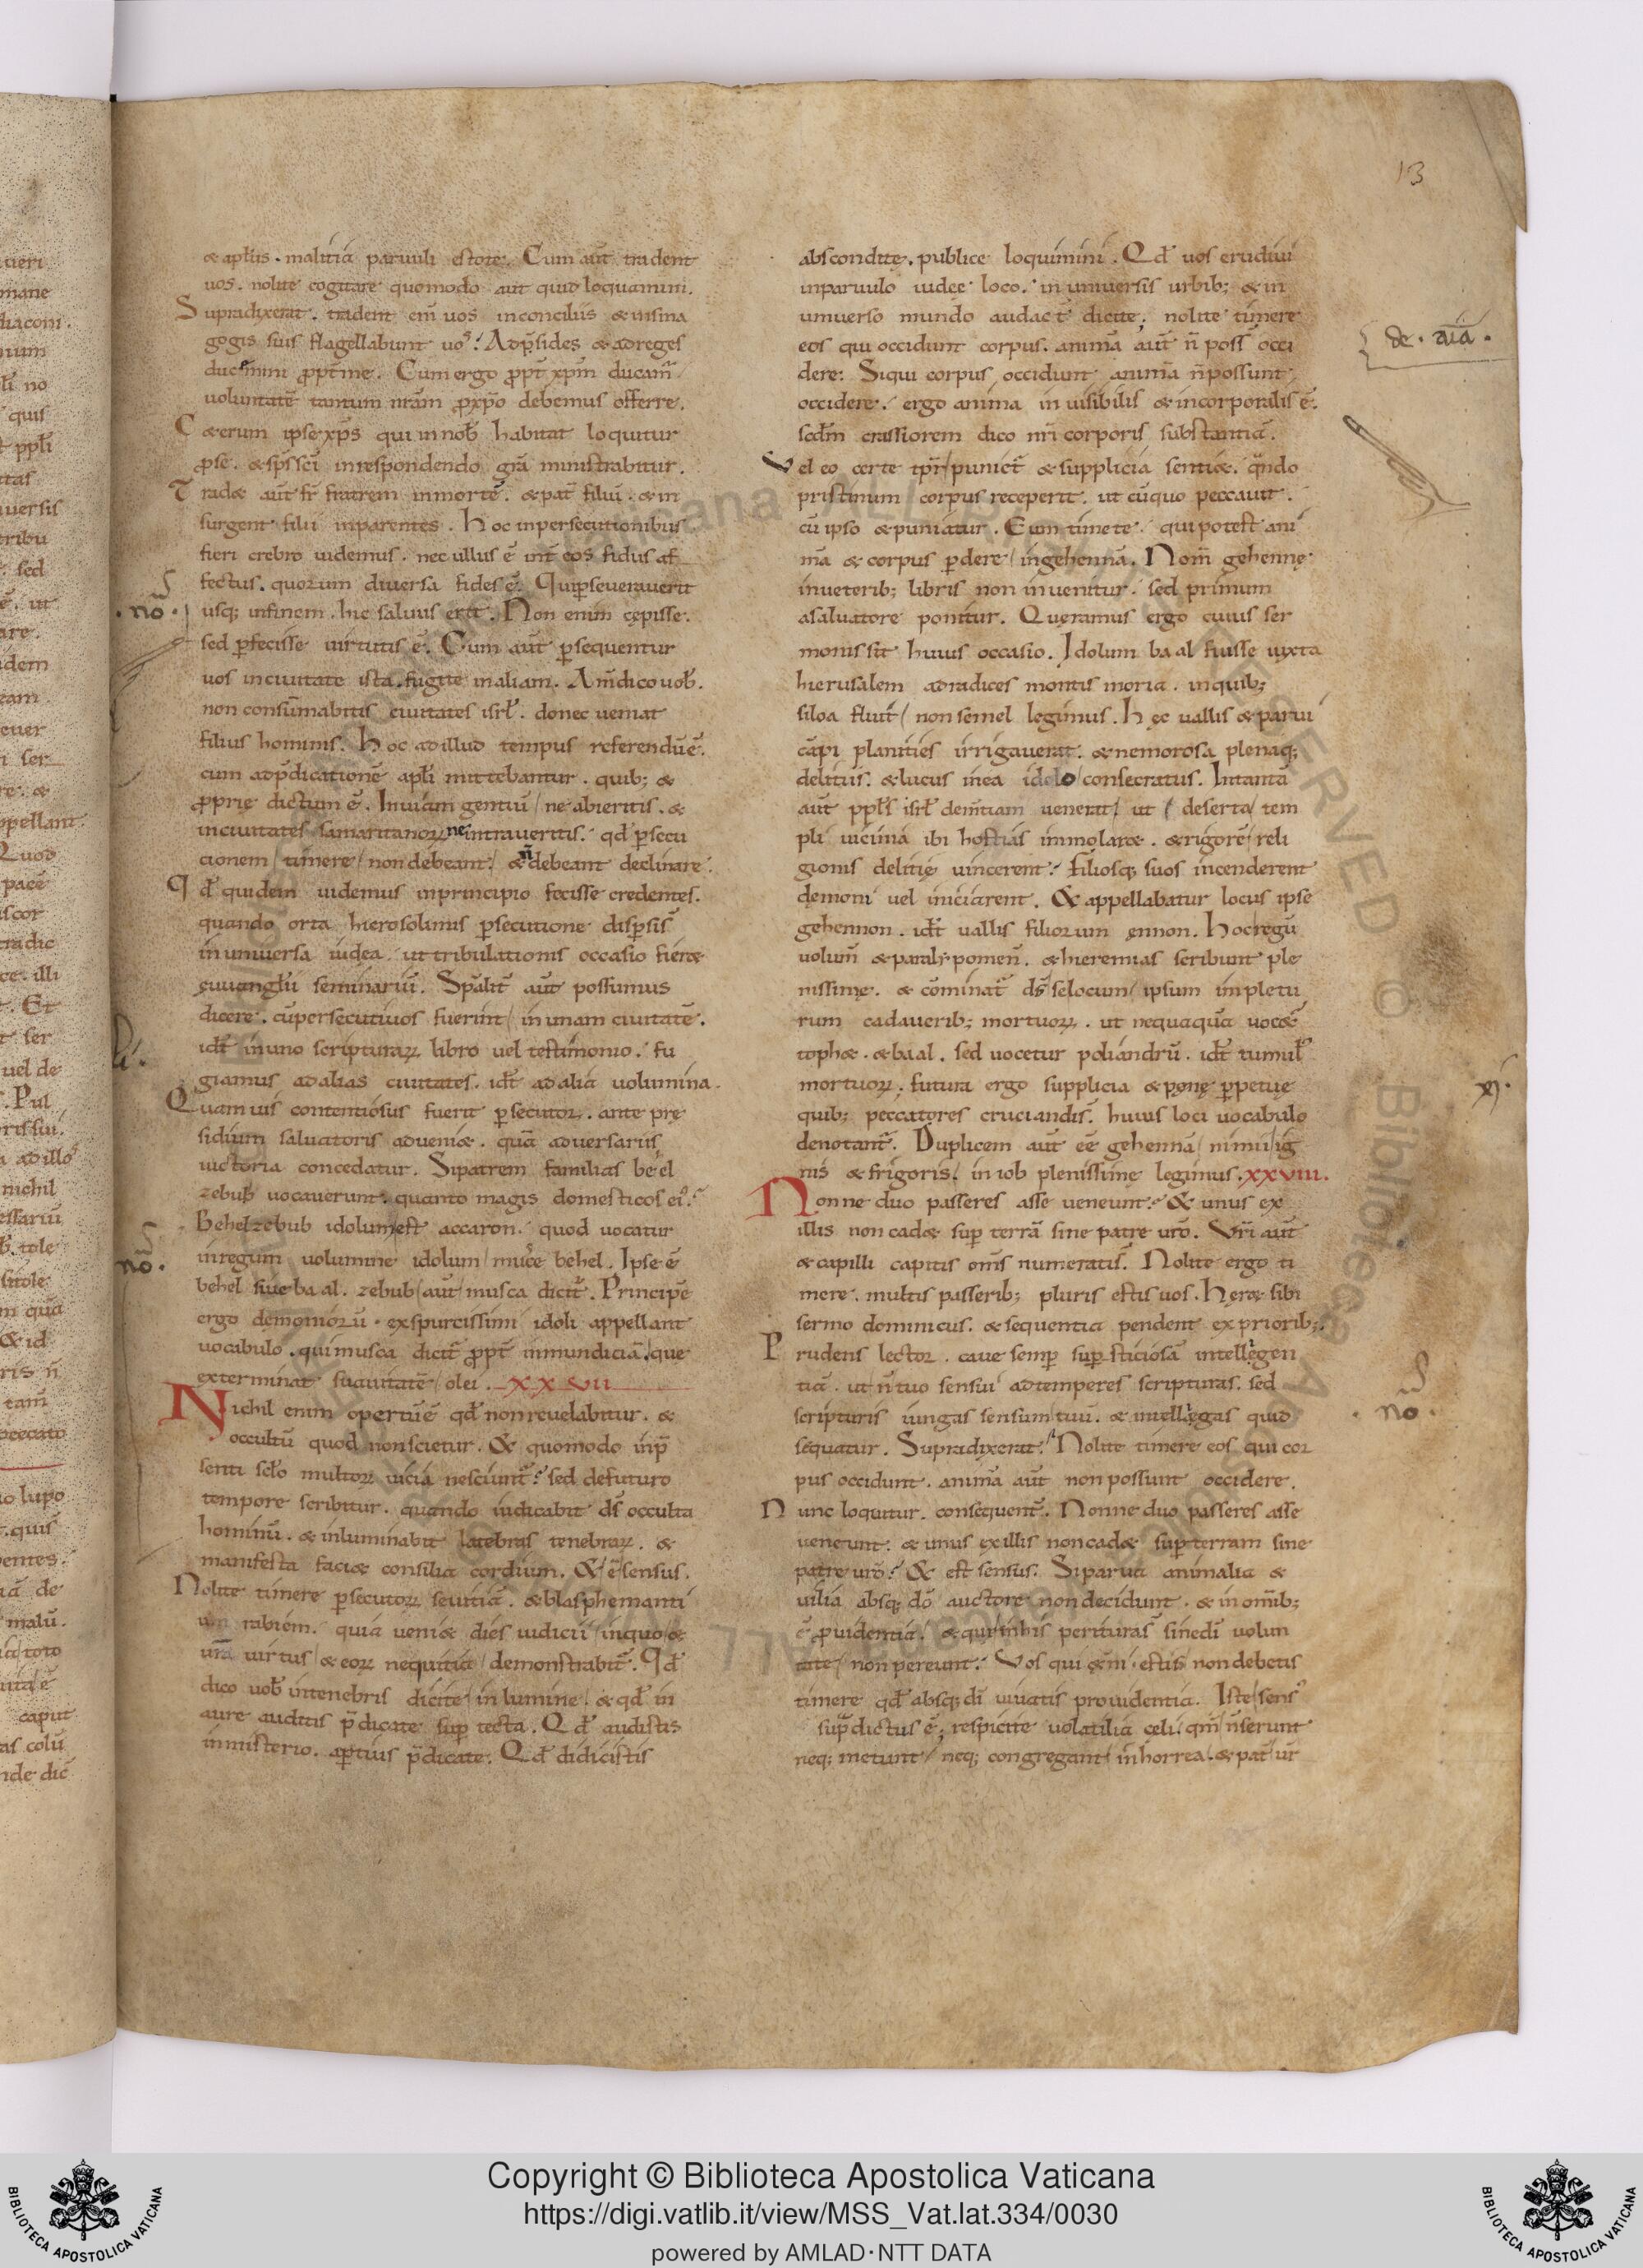 13
& apłis. malitia paruuli estote. Cum aūt tradent
uos. nolite cogitare quomodo aut quid loquamini.
Supradixerat. tradent eīm uos inconciliis & insina
gogis suis flagellabunt uos. Adp̄sides & adreges
ducemini ꝓpt̄ me. Cum ergo ꝓpt̄ xp̄m ducamr̄
uoluntatē tantum nr̄am ꝓxp̄o debemus offerre.
C&erum ipse xp̄s qui in nob̄ habitat loquitur
ꝓse. & sp̄s sc̄i inrespondendo gr̄a ministrabitur.
Trad& aūt fr̄ fratrem inmortē. & pat̄ filiū. & in
surgent filii inparentes. Hoc inpersecutionibus
fieri crebro uidemus. nec ullus ē int̄ eos fidus af
fectus. quorum diuersa fides ē. Qui ꝑseuerauerit
usq; infinem. hic saluus erit. Non enim cępisse.
sed ꝑfecisse uirtutis ē. Cum aūt ꝑsequentur
uos inciuitate ista. fugite inaliam. Am̄ dico uob̄.
non consūmabitis ciuitates isrł. donec ueniat
filius hominis. Hoc adillud tempus referendū ē.
cum adp̄dicationē apłi mittebantur. quib; &
ꝓprię dictum ē. Inuiam gentiū ne abieritis. &
inciuitates samaritanoꝝ ne intraueritis. qd̄ ꝑsecu
cionem timere non debeant. & n̄ debeant declinare.
Qd̄ quidem uidemus inprincipio fecisse credentes.
quando orta hierosolimis ꝑsecutione disꝑsis̄
inuniuersa iudea. ut tribulationis occasio fier&
ęuuangłii seminariū. Spāłit̄ aūt possumus
dicere. cū persecuti uos fuerint in unam ciuitatē.
idt̄ inuno scripturaꝝ libro uel testimonio. fu
giamus adalias ciuitates. idt̄ adalia uolumina.
Quamuis contentiosus fuerit ꝑsecutor. ante prę
sidium saluatoris adueni&. quā aduersariis
uictoria concedatur. Sipatrem familias beel
zebub uocauerunt. quanto magis domesticos ei᾿.
Behelzebub idolum est accaron. quod uocatur
inregum uolumine idolum musce behel. Ipse ē
behel siue baal. zebub aūt musca dicit̄. Principē
ergo dęmoniorū. exspurcissimi idoli appellant
uocabulo. qui musca dicit̄ ꝓpt̄ inmundiciā. que
exterminat suauitatē olei. XXVII
Nichil enim opertū ē qd̄ non reuelabitur. &
occultū quod non scietur. & quomodo inp̄
senti scło multoꝝ uicia nesciunt̄. sed defuturo
tempore scribitur. quando iudicabit ds̄ occulta
hominū. & inluminabit latebras tenebraꝝ. &
manifesta faci& consilia cordium. & ē sensus.
Nolite timere ꝑsecutoꝝ seuitiā. & blasphemanti
um rabiem. quia ueni& dies iudicii inquo &
ur̄a uirtus & eoꝝ nequitia demonstrabit̄. Qd̄
dico uob̄ intenebris dicite in lumine. & qd̄ in
aure auditis p̄dicate suꝑ tecta. Qd̄ audistis
inmisterio. aꝑtius p̄dicate. Qd̄ didicistis
abscondite. publice loquimini. Qd̄ uos erudiui
inparuulo iudęe loco. in uniuersis urbib; & in
uniuerso mundo audact̄ dicite. nolite timere
eos qui occidunt corpus. animā aūt n̄ poss̄ occi
dere: Siqui corpus occidunt animā n̄ possunt
occidere. ergo anima inuisibilis & incorporalis ē.
scd̄m crassiorem dico nr̄i corporis substantiā.
Vel eo certe tp̄r punict̄ & supplicia senti&. qn̄do
pristinum corpus receperit. ut cū quo peccauit.
cū ipso & puniatur. Eum timete. qui potest ani
mā & corpus ꝑdere ingehennā. Nom̄ gehennę
inueterib; libris non inuenitur. sed primum
asaluatore ponitur. Quęramus ergo cuius ser
monis sit huius occasio. Idolum baal fuisse iuxta
hierusalem adradices montis moria. inquib;
siloa fluit non semel legimus. Hęc uallis & parui
cāpi planities irrigauerat. & nemorosa plenaq;
delitiis. & lucus inea idolo consecratus. Intantā
aūt ppłs isrł dem̄tiam uenerat ut deserta tem
pli uicina ibi hostias immolar&. & rigorē reli
gionis delitię uincerent. filiosq; suos incenderent
dęmoni uel iniciarent. & appellabatur locus ipse
gehennon. idt̄ uallis filiorum ęnnon. Hoc regū
uolum̄ & paralipomen̄. & hieremias scribunt ple
nissimę. & cōminat̄ ds̄ se locum ipsum impletu
rum cadauerib; mortuoꝝ. ut nequaquā uocet̄
toph&. & baal. sed uocetur poliandrū. idt̄ tumuł
mortuoꝝ. futura ergo supplicia & pęnę ꝑpetuę
quib; peccatores cruciandis̄. huius loci uocabulo
denotant̄. Duplicem aūt eē gehennā nimii ig
nis & frigoris. in iob plenissime legimus. XXVIII.
Nonne duo passeres asse ueneunt. & unus ex
illis non cad& suꝑ terrā sine patre ur̄o. Vr̄i aūt
& capilli capitis om̄s numeratis̄. Nolite ergo ti
mere. multis passerib; pluris estis uos. Her& sibi
sermo dominicus. & sequentia pendent exprioríb;.
Prudens lector. caue semꝑ suꝑsticiosā intellegen
tiā. ut n̄ tuo sensui adtemperes scripturas. sed
scripturis iungas sensum tuū. & intellegas quid
sequatur. Supradixerat. Nolite timere eos qui cor
pus occidunt. animā aūt non possunt occidere.
Nunc loquitur. consequent̄. Nonne duo passeres asse
ueneunt. & unus exillis non cad& suꝑ terram sine
patre ur̄o. & est sensus. Siparua animalia &
uilia absq; do auctore non decidunt. & in omīb;
ē ꝓuidentia. & quę inhis peritura s̄ sinedī uolun
tate non pereunt. Vos qui &n̄i estis non debetis
timere qd̄ absq; di uiuatis prouidentia. Iste sens᾿
suprā dictus ē; respicite uolatilia celi qm̄ n̄ serunt
neq; metunt neq; congregant in horrea. & pat̄ ur̄
de. aīa.
xj.
.nō.
nō.
nō.
Copyright © Biblioteca Apostolica Vaticana
https://digi.vatlib.it/view/MSS_Vat.lat.334/0030
powered by AMLAD·NTT DATA
BIBLIOTECA APOSTOLICA VATICANA
BIBLIOTECA APOSTOLICA VATICANA